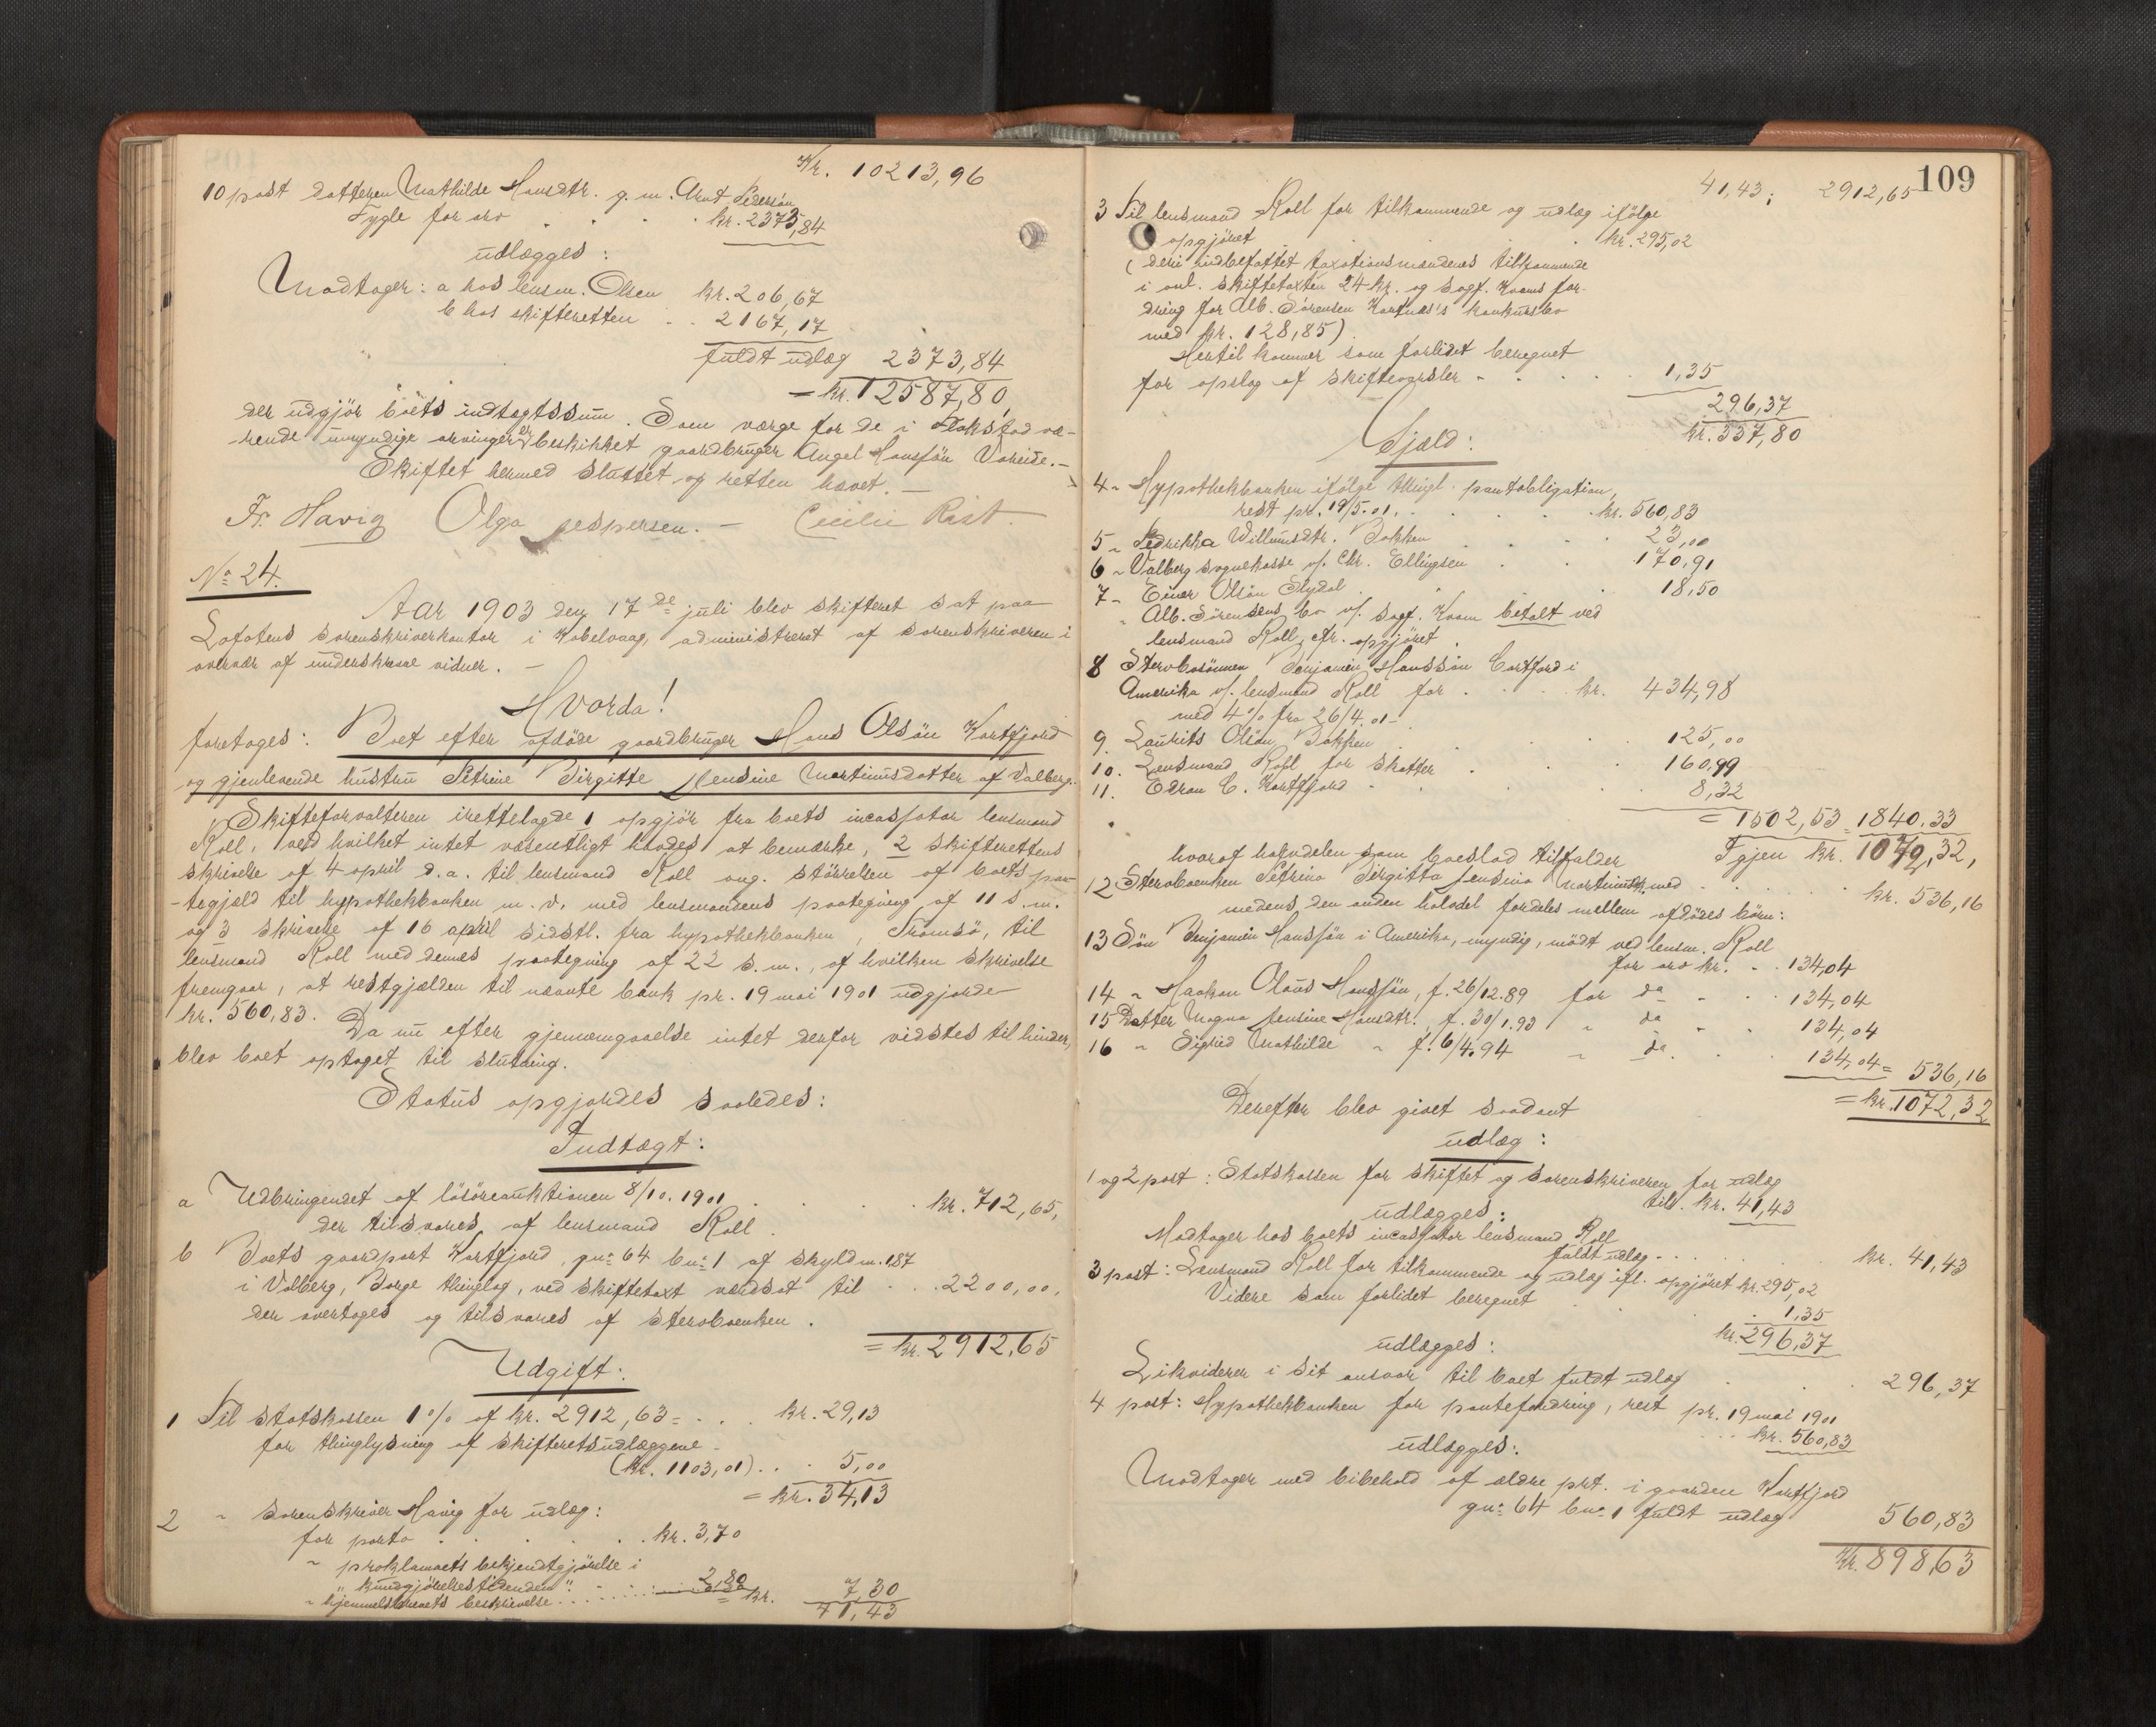 Kr. 10213,96
10 post datteren Mathilde Hansdtr. g. m. Arnt Pedersøn
Tygle for arv . . . . kr. 2373,84
udlægges:
Modtager: a hos lensm. Olsen kr. 206,67
b hos skifteretten - . . 2167,17
fuldt udlæg 2373,84
= kr. 12587,80
der udgjør boets indtægtssum. Som værge for de i Flakstad væ-
rende umyndige arvinger er beskikket gaardbruger Angel Hansøn Vareide.-
Skiftet hermed sluttet og retten hævet. -
Fr. Havig Olga Jespersen. - Cecilie Rist.
No 24.
Aar 1903 den 17de juli blev skifteret sat paa
Lofotens sorenskriverkontor i Kabelvaag, administreret af sorenskriveren i
overvær af underskrevne vidner. -
Hvorda!
foretoges: Boet efter afdøde gaardbruger Hans Olsøn Kartfjord
og gjenlevende hustru Petrine Birgitte Jensine Martinusdatter af Valberg.
Skifteforvalteren irettelagde 1 opgjør fra boets incassator lensmand
Roll, ved hvilket intet væsentligt havdes at bemærke, 2 skifterettens
skrivelse af 4 april d.a. til lensmand Roll ang. størrelsen af boets pan-
-tegjeld til hypothekbanken m.v. med lensmandens paategning af 11 s.m.
og 3 skrivelse af 16 april sidstl. fra hypothekbanken, Tromsø, til
lensmand Roll med dennes paategning af 22 s.m., af hvilken skrivelse
fremgaar, at restgjælden til nævnte bank pr. 19 mai 1901 udgjorde
kr. 560,83. Da nu efter gjennemgaaelse intet derfor vidstes til hinder,
blev boet optaget til slutning.
Status opgjordes saaledes:
Indtægt:
a Udbringendet af løsøreauktionen 8/10. 1901 . . . . kr. 712,65,
der tilsvares af lensmand Roll.
b Boets gaardpart Kartfjord, gno 64 bno 1 af skyld m. 1.87
i Valberg, Borge thinglag, ved skiftetaxt værdsat til . . . 2200,00,
der overtages og tilsvares af stervboenken.
= kr. 2912,65
Udgift:
1 Til statskassen 1% af kr. 2912,63 = . . . kr. 29,13
for thinglysning af skifteretsudlæggene -
(kr. 1103,01) . . . 5,00
= kr. 34,13
2 " sorenskriver Havig for udlæg:
for porto . . . . . kr. 3,70
" proklamaets bekjendtgjørelse i
"kundgjørelsestidenden" . . . 2,80
" hjemmelsbrevets beskrivelse . . . . = kr. 7,30
41,43
109
41,43; 2912,65
3 Til lensmand Roll for tilkommende og udlæg ifølge
opgjøret . . . . kr. 295,02
(deri indbefattet taxationsmændenes tilkommende
i anl. skiftetaxten 24 kr. og sagf. Kvams for-
dring for Alb. Sørensen Kartnæs's konkursbo
med kr. 128,85)
Hertil kommer som forlidet beregnet
for opslag af skiftevarsler - . . . . 1,35
296,37
kr. 337,80
Gjæld:
4 " Hypothekbanken ifølge thingl. pantobligation,
rest pr. 19/5.01. . . . . . kr. 560,83
5 " Fredrikka Willumsdtr. Bakken . . . . 23,00
6 " Valberg sognekasse v/. Chr. Ellingsen . . 170,91
7 " Einer Olsøn Slydal . . . . 18,50
" Alb. Sørensens bo v/. sagf. Kvam betalt ved
lensmand Roll, efr. opgjøret.
8 Stervbosønnen Benjamin Hanssøn Cartfjord i
Amerika v/. lensmand Roll for . . . . kr. 434,98
med 4% fra 26/4.01 -
9. Laurits Olsøn Bakken . . . . 125,00
10. Lensmand Roll for skatter . . . . 160,99
11. Edvan C. Kartfjord . . . . 8,32
= 1502,53 = 1840,33
Igjen kr. 1072,32,
hvoraf halvdelen som boeslod tilfalder
12 Stervboenken Petrine Birgitta Jensine Martinusdtr. med . . . . . kr. 536,16
medens den anden halvdel fordeles mellem afdødes børn:
13 Søn Benjamin Hansøn i Amerika, myndig, mødt ved lensm. Roll
for arv kr. . . 134,04
14 " Haakon Olaus Hansøn, f. 26/12.89 for do - . . 134,04
15 Datter Magna Jensine Hansdtr., f. 30/1.93 " do " . . 134,04
16 " Sigrid Mathilde " f. 6/4.94 " do. . . 134,04 = 536,16
= kr. 1072,32
Derefter blev givet saadant
udlæg:
1 og 2 post: Statskassen for skiftet og sorenskriveren for udlæg
tils. kr. 41,43
udlægges:
Modtager hos boets incassator lensmand Roll
fuldt udlæg . . . . . kr. 41,43
3 post: Lensmand Roll for tilkommende og udlæg ifl. opgjøret kr. 295,02
Videre som forlidet beregnet . . . . 1,35
kr. 296,37
udlægges:
Likviderer i sit ansvar til boet fuldt udlæg . . . 296,37
4 post: Hypothekbanken for pantefordring, rest pr. 19 mai 1901
. . . kr. 560,83
udlægges:
Modtager med bibehold af ældre prt. i gaarden Kartfjord
gno 64 bno 1 fuldt udlæg 560,83
Kr. 898,63